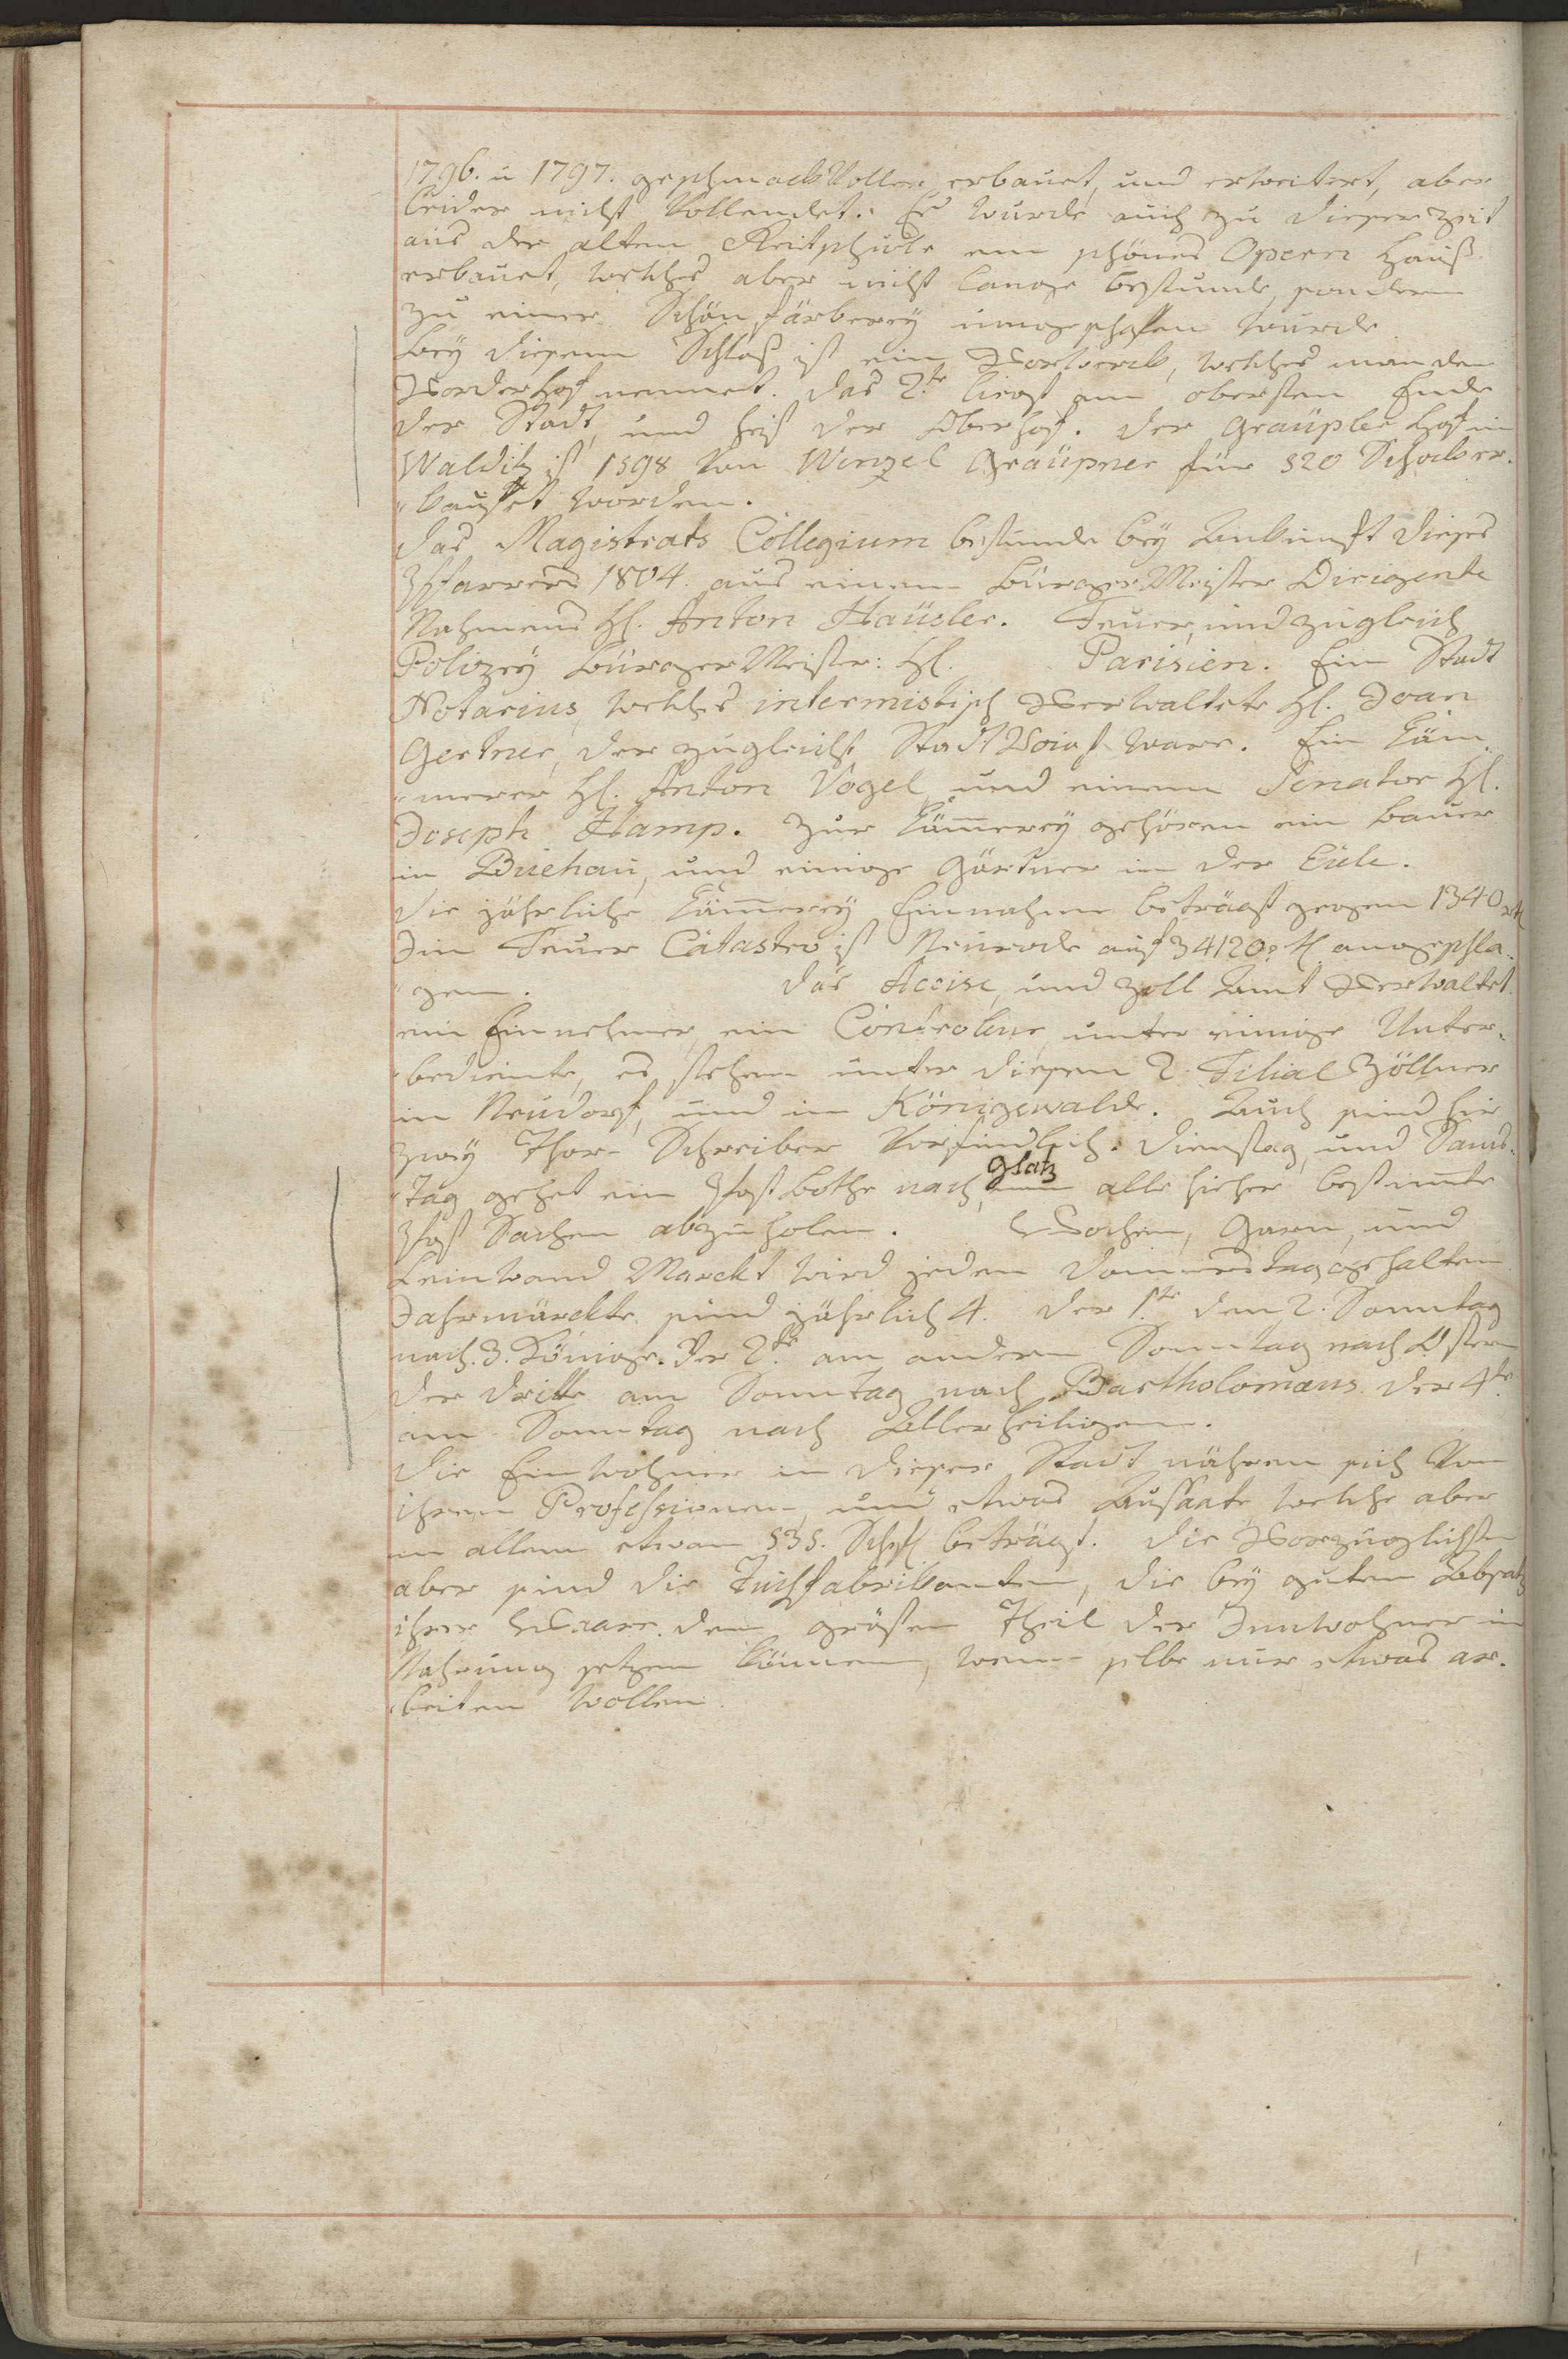 1796. u 1797. geschmackVoller erbauet, und erweitert, aber
leider nicht Vollendet. Es wurde auch zu dieser Zeit
aus der alten Reitschule ein schönes Opern Hauß
erbauet, welches aber nicht lange bestunde, sondern
zu einer Schön färberey umgeschafen wurde
Bey diesem Schloß ist ein Vorwerck, welches man den
Vorderhof nennet. Das 2te liegt am obersten Ende
der Stadt, und heist der Oberhof. Der Graüpler Hof in
Walditz ist 1598 Von Wenzel Graüpner für 520 Schock er-
kaufet worden.
Das Magistrats Collegium bestunde bey Ankunft dieses
Pfarrers 1804. aus einem BürgerMeister Dirigente
Nahmens H. Anton Haüsler. Feuer, und zugleich
Polizey BürgerMeister: H. Parisien. Ein Stadt
Notarius, welches intermistisch Verwaltete H. Joan
Gertner, der zugleich StadtVoigt ware. Ein Käm-
merer H. Anton Vogel und einem Senator H.
Joseph Hamp. Zur Käm̅erey gehören ein Bauer
in Buchau, und einige Gärtner in der Eule.
Die jährliche Käm̅erey Einnahme beträgt gegen 1340 rtl
Im Feuer Catastro ist Neurode auf 34120 rtl. angeschla-
gen. Das Accise, und Zoll Amt Verwaltet
ein Einnehmer, ein Controleur, unter einige Unter-
bediente, es stehen unter diesem 2. Filial Zöllner
in Neudorf, und in Königswalde. Auch sind hier
zwey Thor-Schreiber Vorfindlich. Dienstag, und Sams-
tag gehet ein Post bothe nach Glatz alle hieher bestim̅te
Post Sachen abzuholen. Wochen, Garn, und
Leinwand Marckt wird jeden Donnerstag gehalten.
Jahrmärckte sind jährlich 4. Der 1te den 2. Sonntag
nach. 3. Könige. Der 2te am andern Sonntag nach Ostern
der dritte am Sonntag nach Bartholomæus. Der 4te
am Sonntag nach Allerheiligen.
Die Einwohner in dieser Stadt nähren sich Von
ihren Professionen, und etwas Aussaate, welche aber
in allem etwan 535. Schfl beträgt. Die Vorzüglichsten
aber sind die Tuchfabrikanten, die bey gutem Absatz
ihrer Waare, den größten Theil der Innwohner in
Nahrung setzen können, wenn selbe nur etwas ar-
beiten wollen.